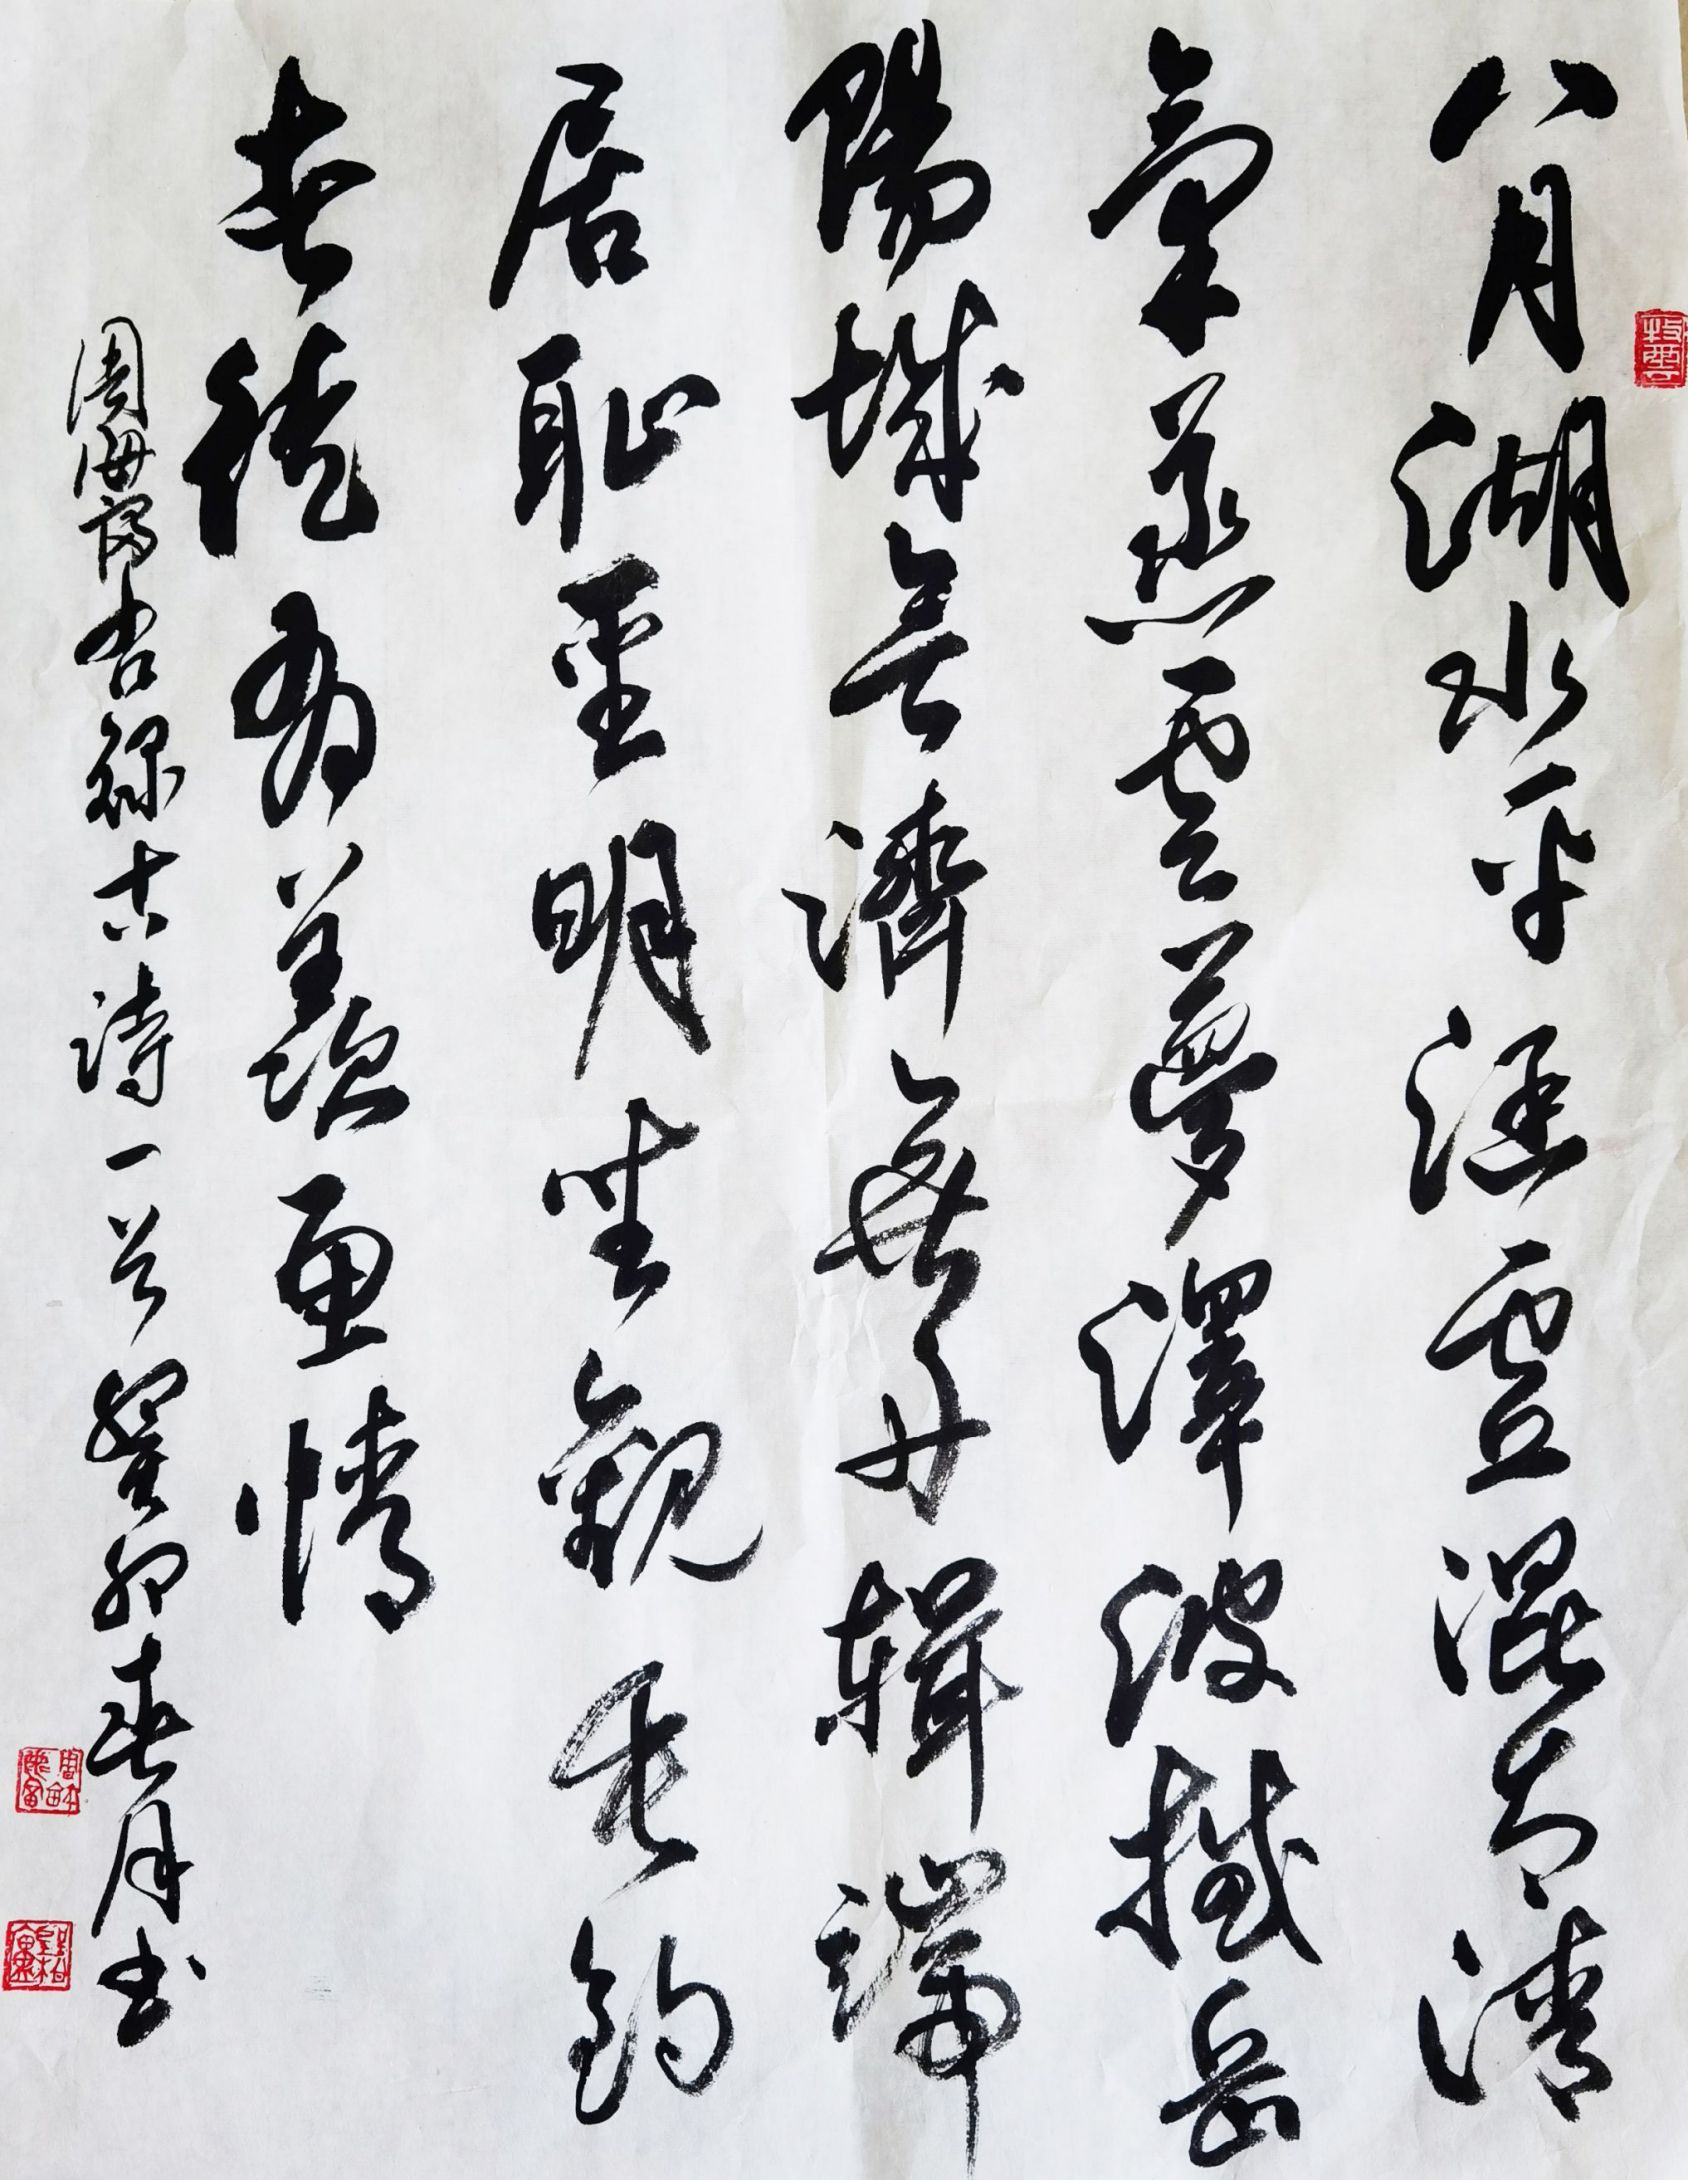 八月湖水平涵虛混太清
氣蒸雲夢澤波撼岳
陽城濟無舟輯端
居耻聖明坐觀垂釣
者徒有羨魚情
周海録古詩一首癸卯春月书